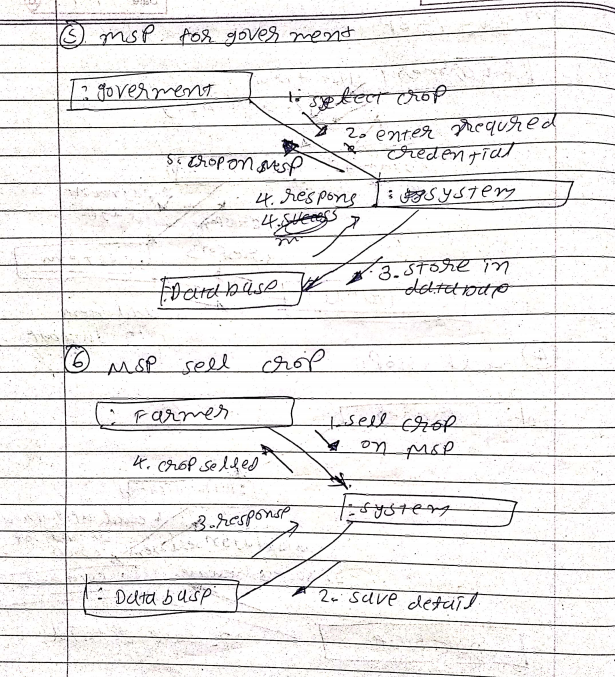 ⑤ msp for goverment
: goverment
1. select crop
2. enter required
credential
5. crop on msp
4. respons
: system
3. store in
database
: Database
⑥ MSP sell crop
: Farmer
1. sell crop
on MSP
4. crop selled
: system
3. response
: Database
2. save detail